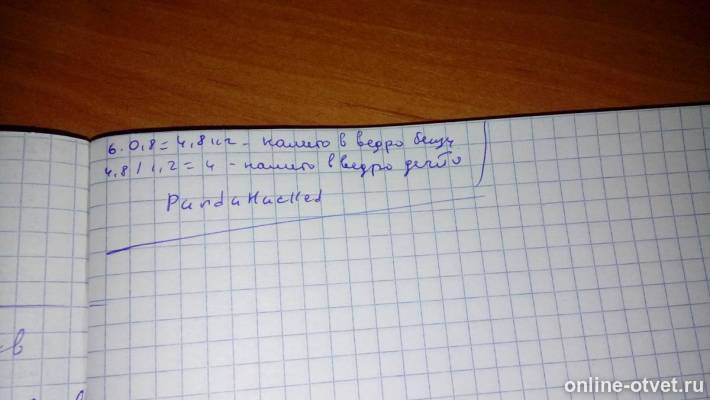 6.0,8=4,8 кг - налито в ведро бензи
4,8/1,2=4 - налито в ведро дегтю
PandaHacked
в
online-otvet.ru